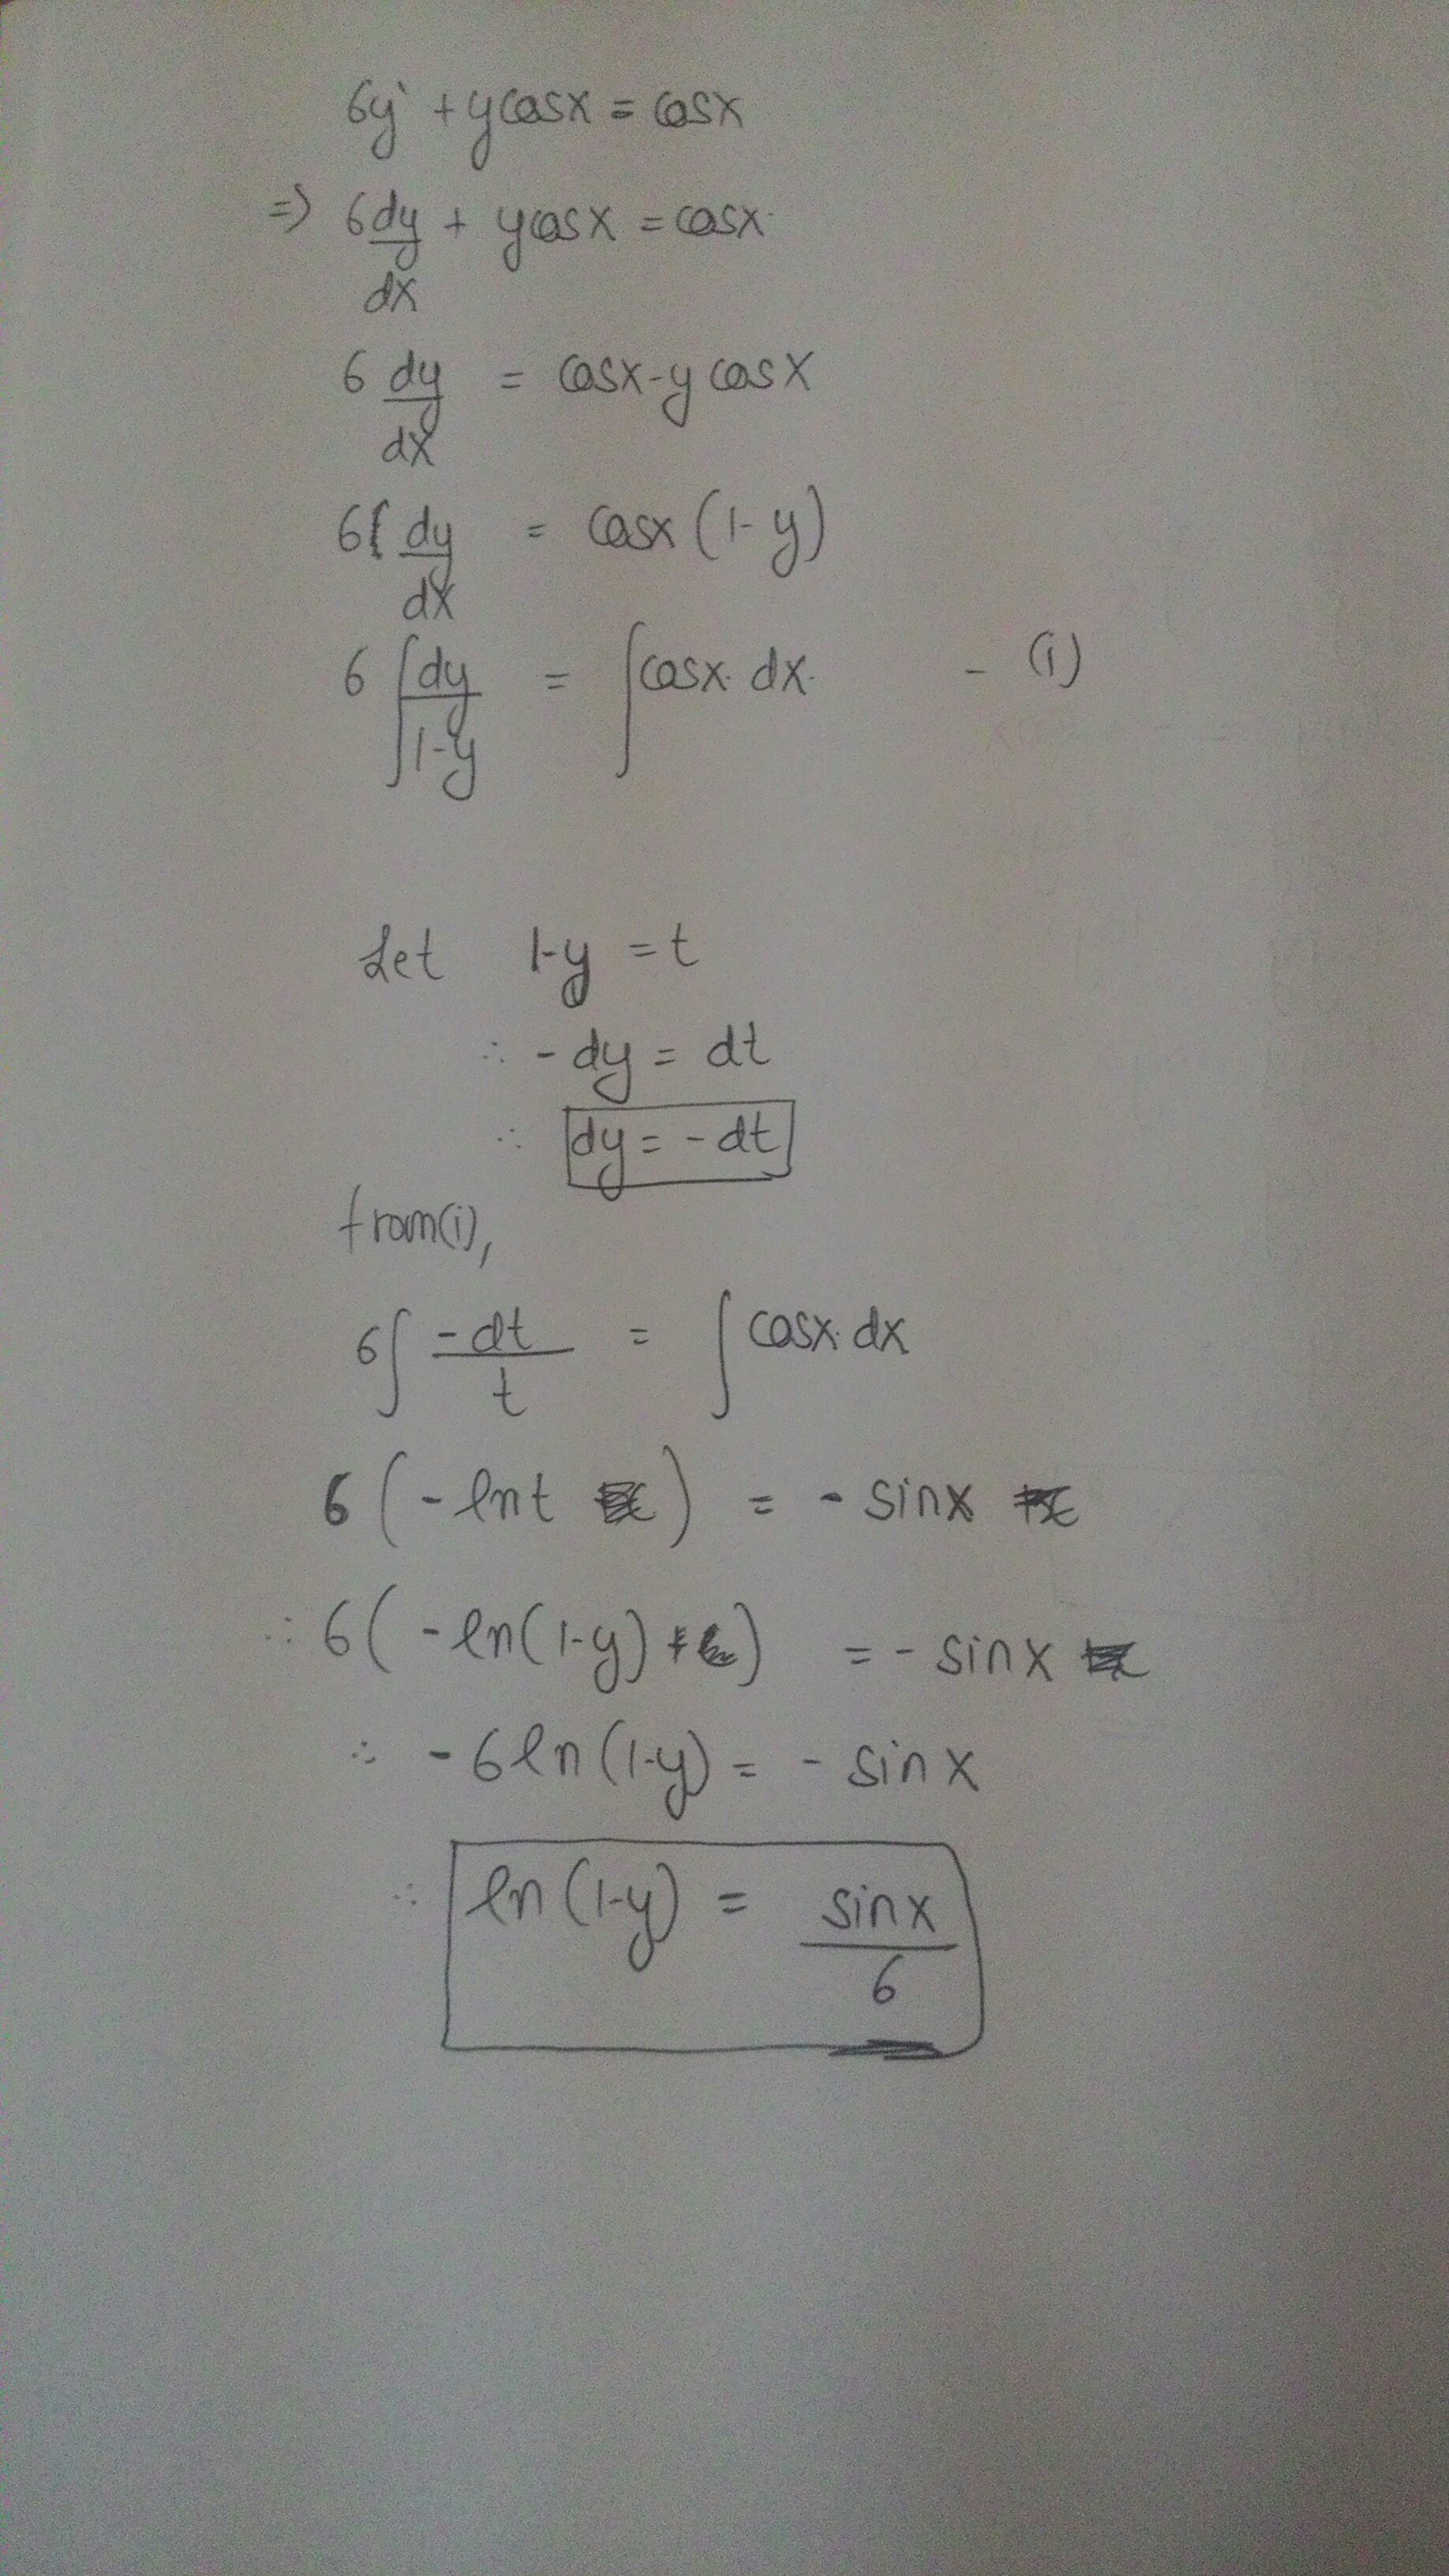 6y' + y cosx = cosx
⇒ 6 dy/dx + y cosx = cosx.
6 dy/dx = cosx - y cosx
6 dy/dx = cosx (1-y)
6 ∫ dy/1-y = ∫ cosx. dx. - (i)
Let 1-y = t
∴ -dy = dt
∴ dy = -dt
from(i),
6 ∫ -dt/t = ∫ cosx. dx
6 (-ln t) = - sinx
∴ 6 (-ln(1-y)) = - sinx
∴ -6 ln(1-y) = - sinx
∴ ln(1-y) = sinx/6